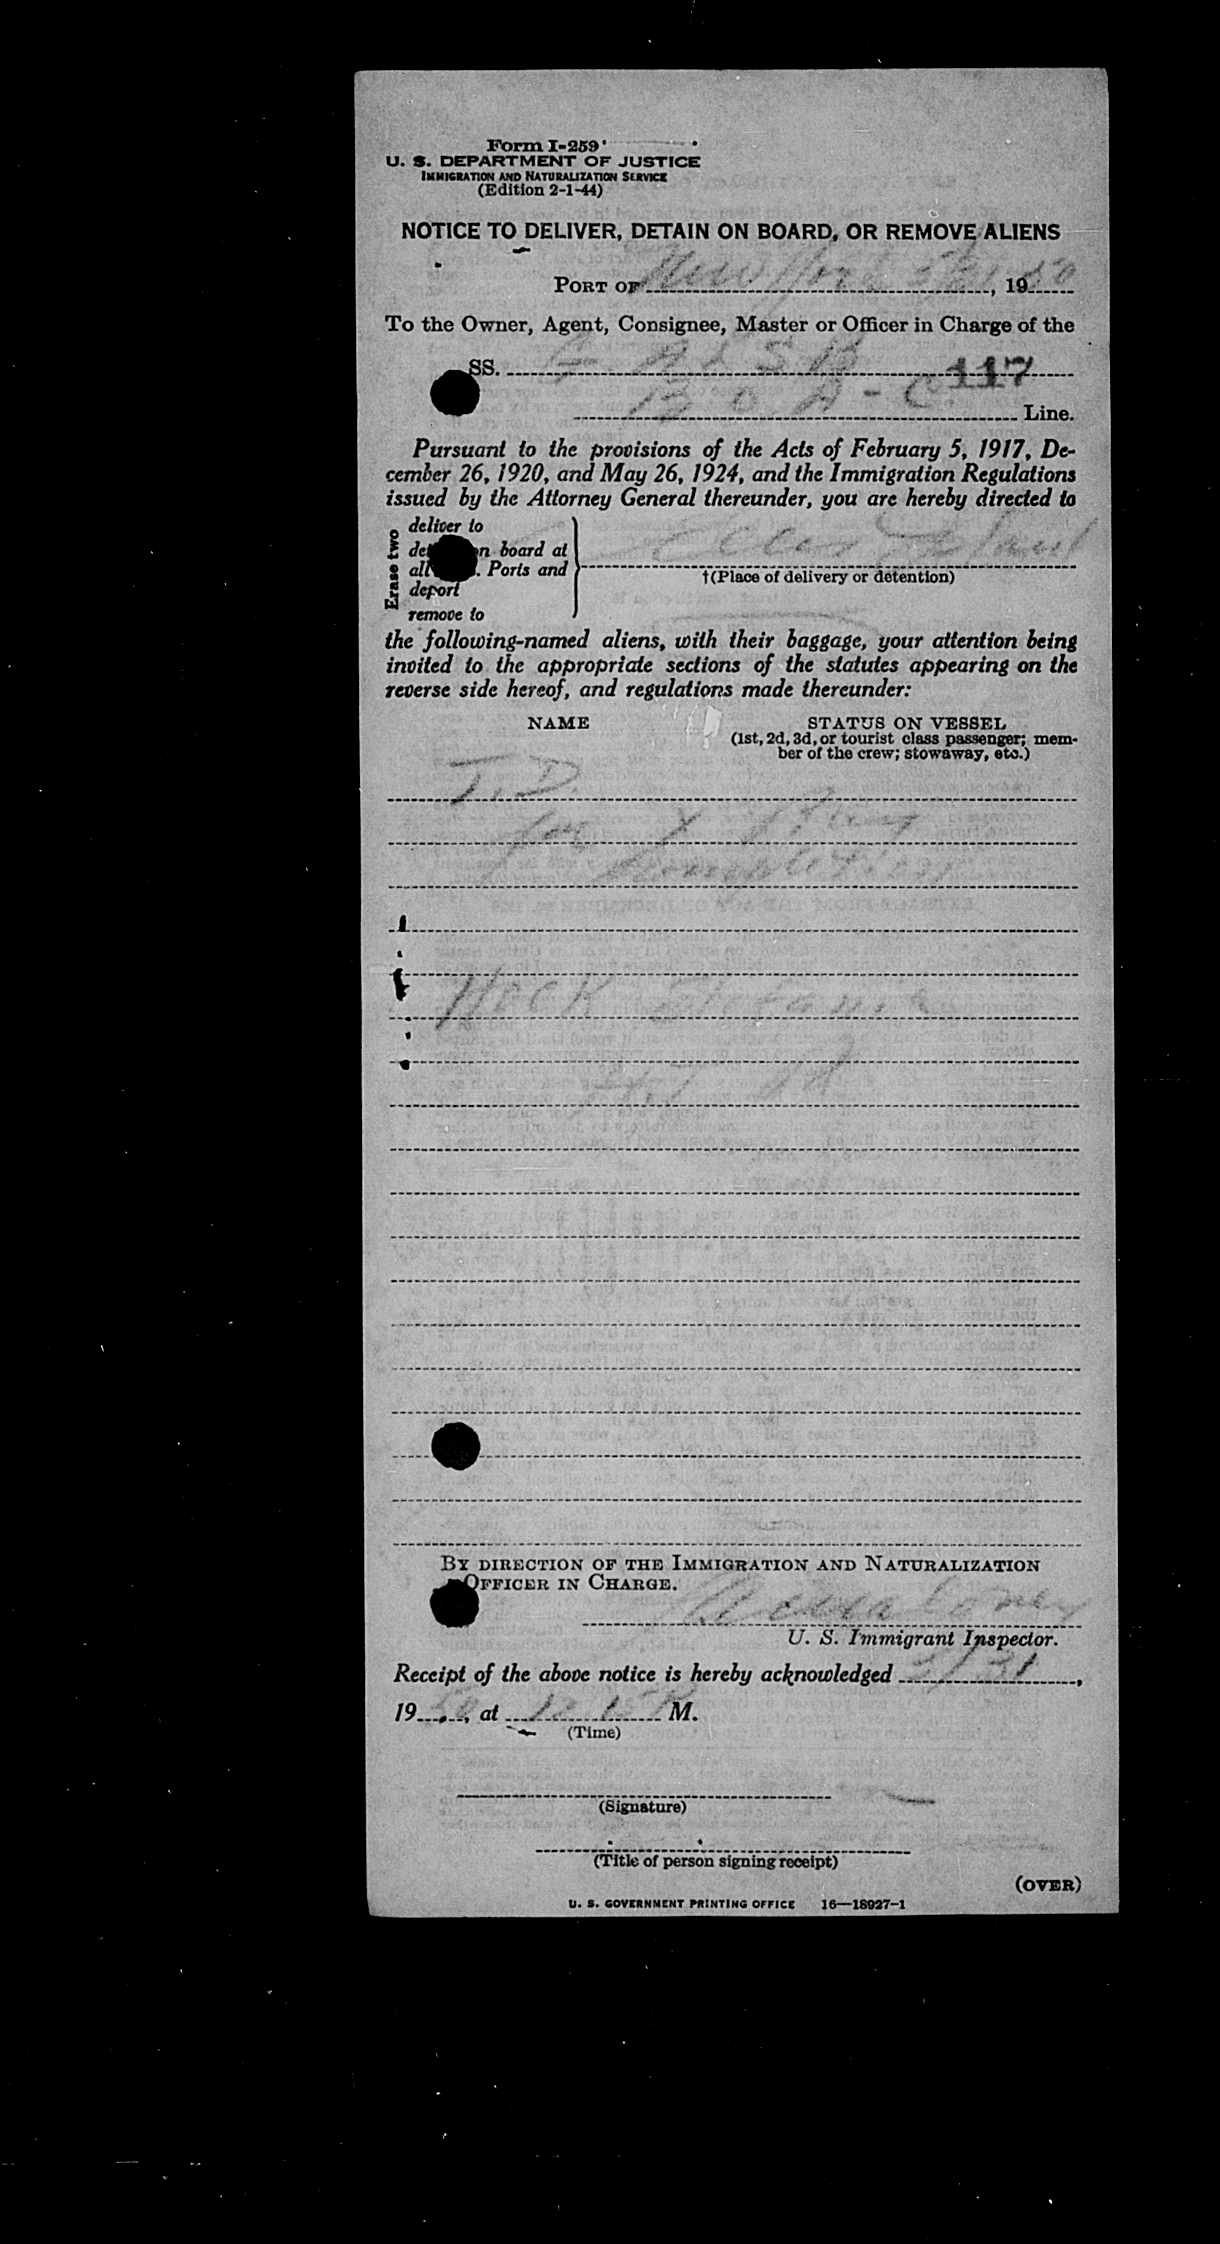 Form I-259
U. S. DEPARTMENT OF JUSTICE
IMMIGRATION AND NATURALIZATION SERVICE
(Edition 2-1-44)
NOTICE TO DELIVER, DETAIN ON BOARD, OR REMOVE ALIENS
PORT OF New York 3/31, 1950
To the Owner, Agent, Consignee, Master or Officer in Charge of the
SS. G-ALSB 117
B O A - C Line.
Pursuant to the provisions of the Acts of February 5, 1917, De-
cember 26, 1920, and May 26, 1924, and the Immigration Regulations
issued by the Attorney General thereunder, you are hereby directed to
Erase two
deliver to
on board at
all . Ports and
deport
remove to
Ellis Island
†(Place of delivery or detention)
the following-named aliens, with their baggage, your attention being
invited to the appropriate sections of the statutes appearing on the
reverse side hereof, and regulations made thereunder:
NAME
STATUS ON VESSEL
(1st, 2d, 3d, or tourist class passenger; mem-
ber of the crew; stowaway, etc.)
T.D.
for
HOCK
BY DIRECTION OF THE IMMIGRATION AND NATURALIZATION
OFFICER IN CHARGE.
U. S. Immigrant Inspector.
Receipt of the above notice is hereby acknowledged 3/31,
1950, at 12 15 M.
(Time)
(Signature)
(Title of person signing receipt)
(OVER)
U. S. GOVERNMENT PRINTING OFFICE 16—18927-1